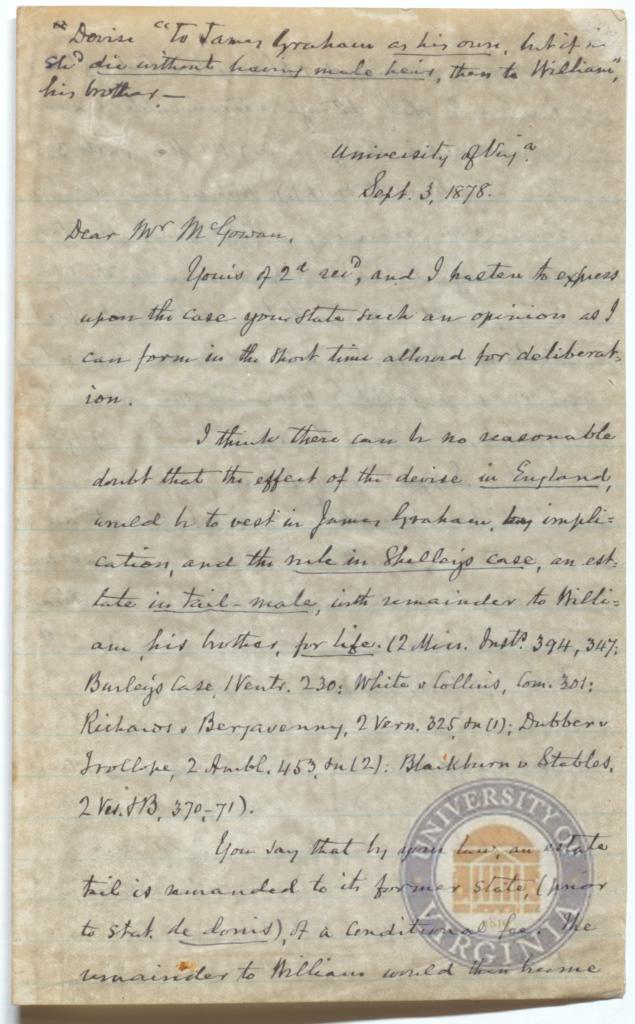 "Devise "to James Graham as his own, but if he
sh<sup>d</sup> die without having male heir, then to William",
his brother.—
University of Virg<sup>a</sup>.
Sept. 3, 1878.
Dear Mr McGowan,
Yours of 2<sup>d</sup> rec<sup>d</sup>, and I hasten to express
upon the case you state such an opinion as I
can form in the short time allowed for deliberat-
ion.
I think there can be no reasonable
doubt that the effect of the devise in England,
would be to vest in James Graham, by impli=
cation, and the rule in Shelley's case, an est-
tate in tail-male, with remainder to Willi=
am, his brother, for life. (2 Min. Inst<sup>s</sup> 394, 347;
Burley's Case, 1 Ventr. 230; White v Collins, Com. 301;
Richards v Bergavenny, 2 Vern. 325, &n (1); Dubber v
Trollope, 2 Ambl. 453, &n (2); Blackburn v Stables,
2 Ves. & B, 370-71).
You say that by your law, an estate
tail is remanded to its former state, (prior
to stat. de donis), of a conditional fee. The
remainder to William would then become
UNIVERSITY OF
VIRGINIA
1819